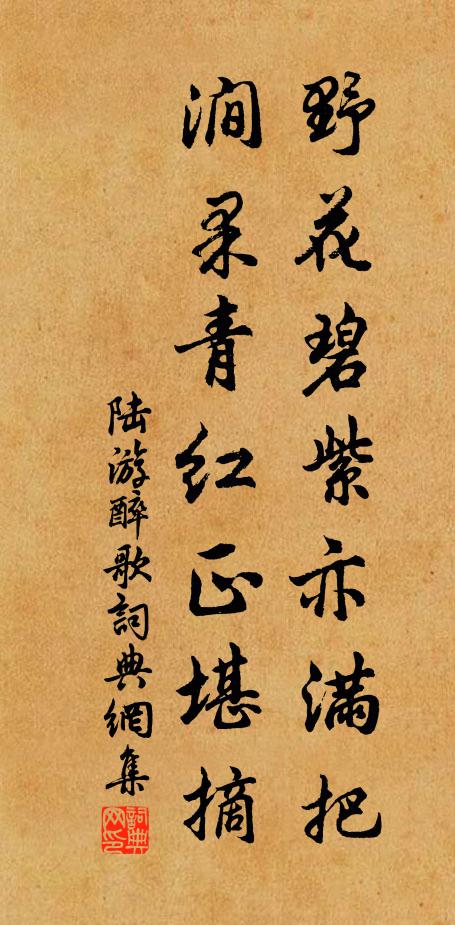 野花碧紫亦满把
涧果青红正堪摘
陆游醉歌詞典網集
詞典网印